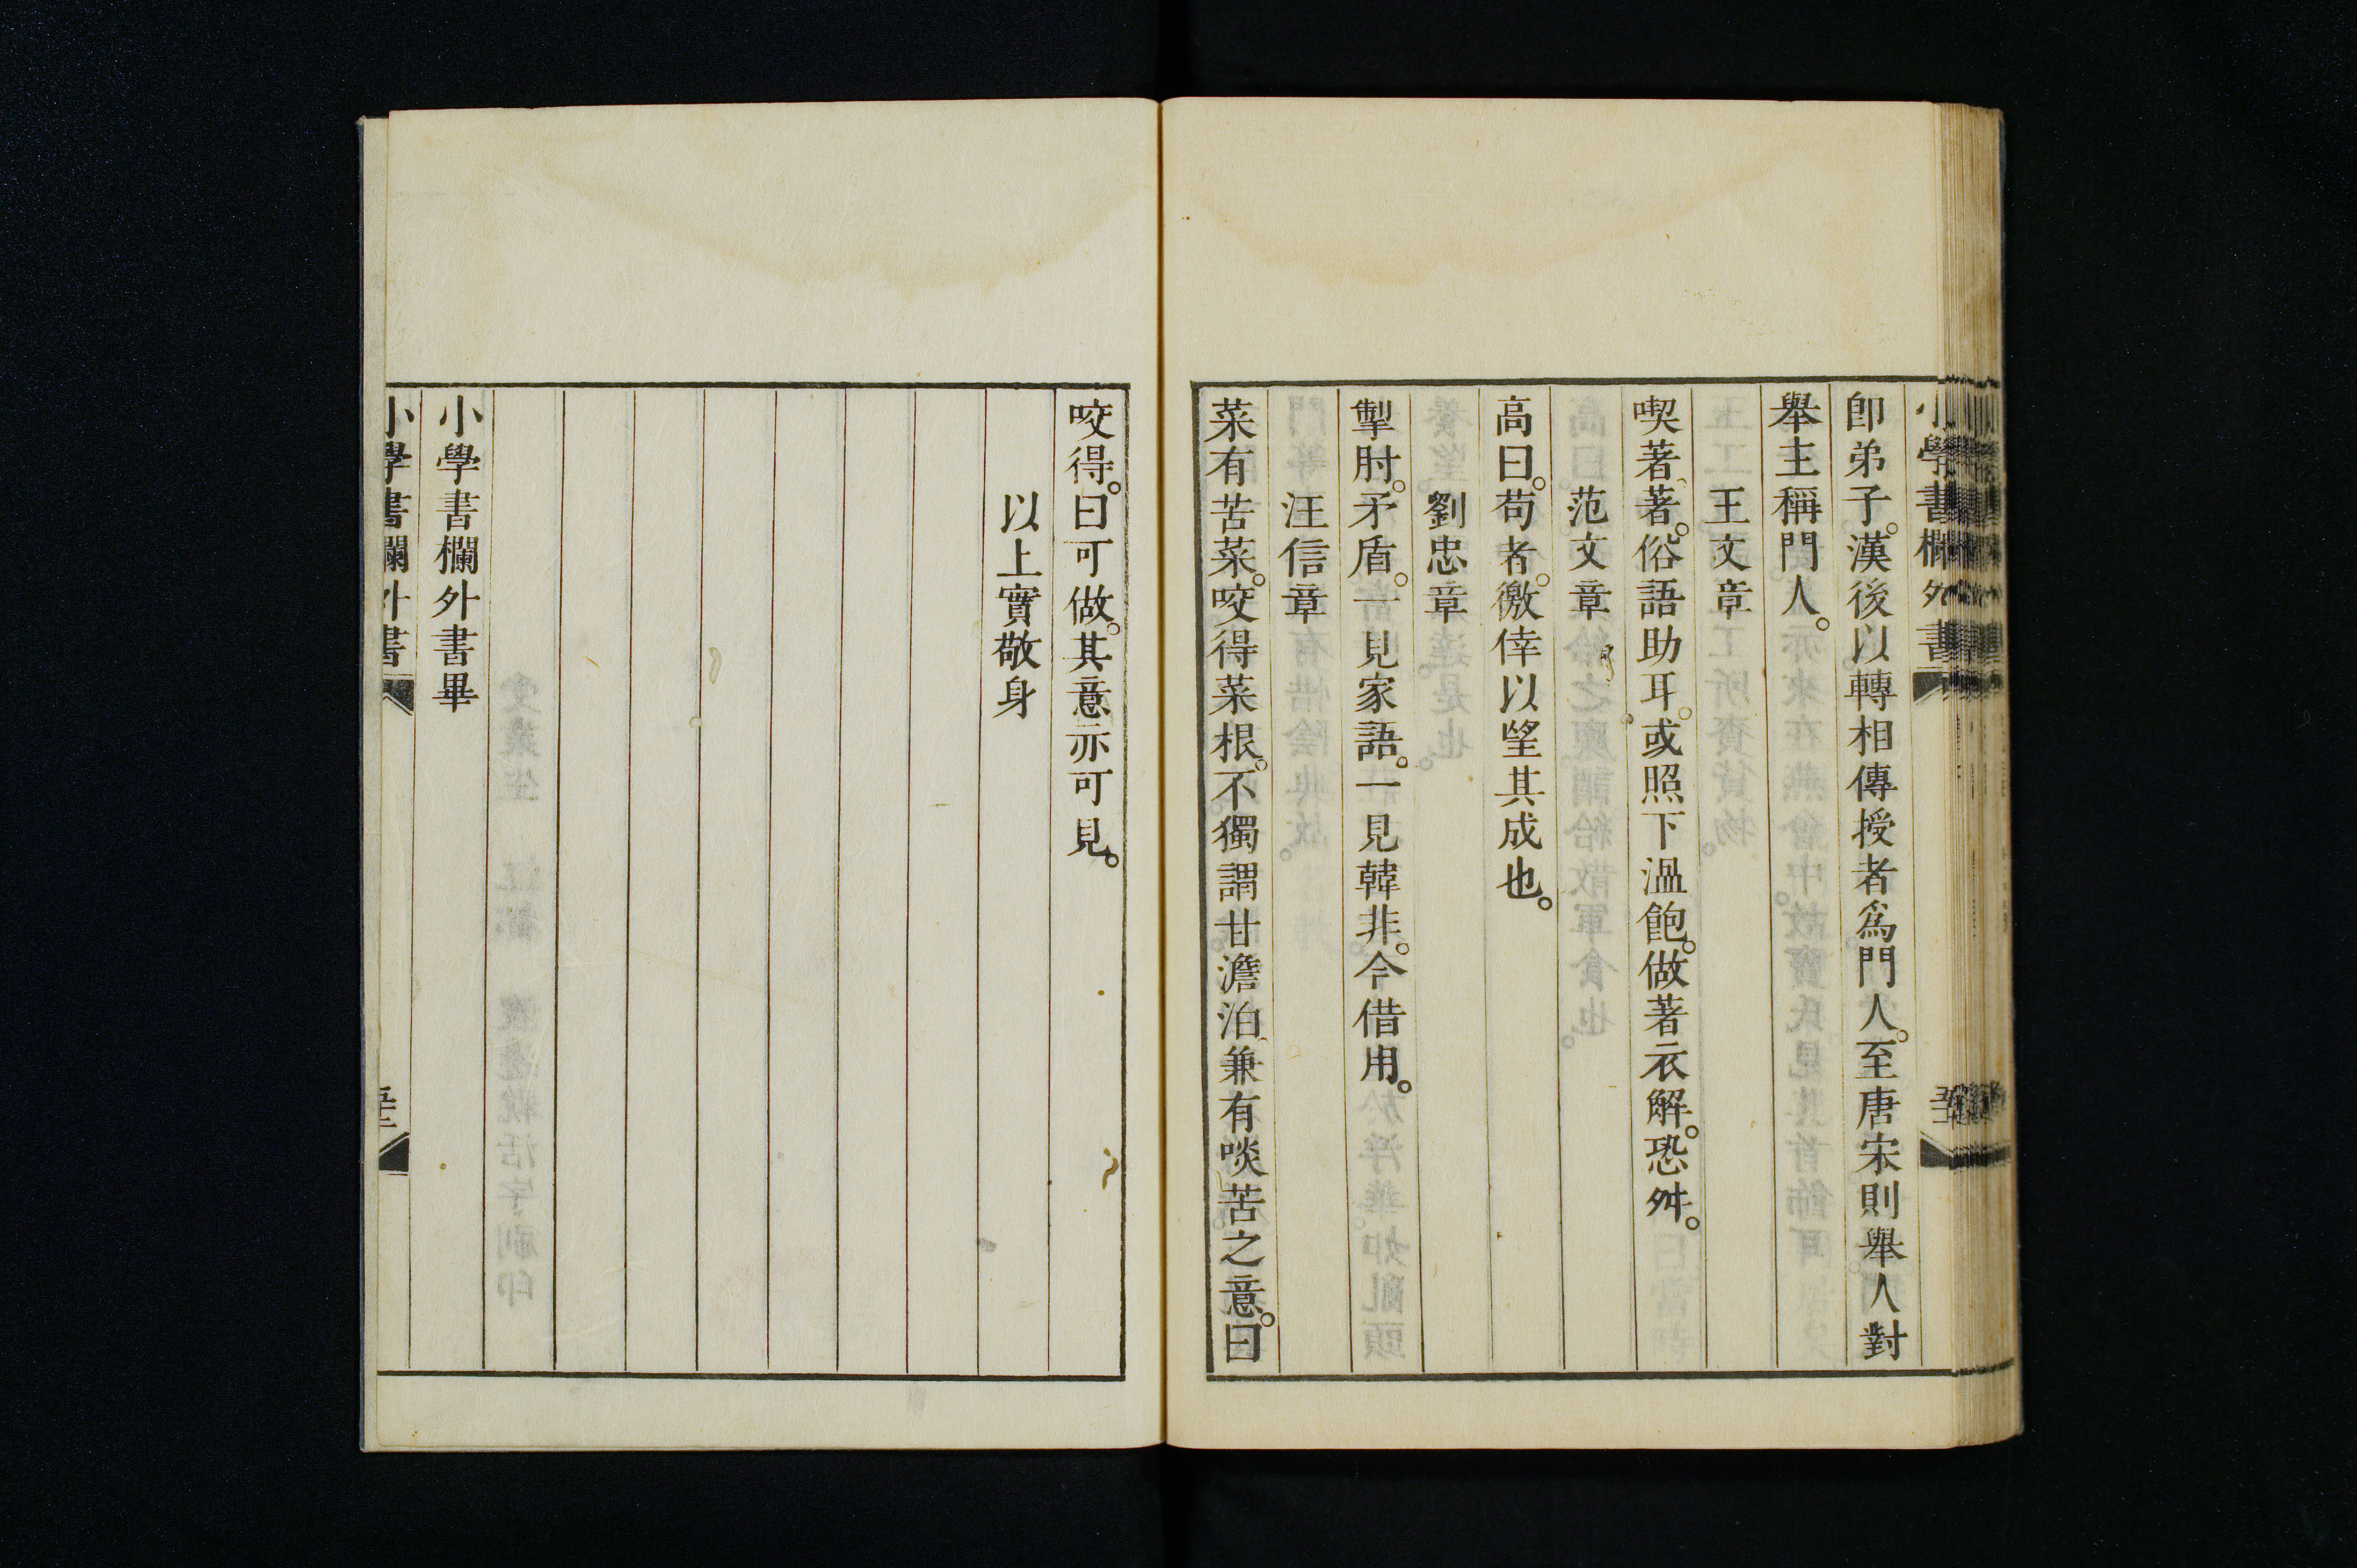 小學書欄外書
卽弟子。漢後以轉相傳授者爲門人。至唐宋則舉人對
舉主稱門人。
王文章
喫著、著。俗語助耳。或照下溫飽。做著衣解。恐舛。
范文章
高曰。苟者。徼倖以望其成也。
劉忠章
掣肘。矛盾。一見家語。一見韓非。今借用。
汪信章
菜有苦菜。咬得菜根。不獨謂甘澹泊、兼有啖苦之意。曰
咬得。曰可做。其意亦可見。
以上實敬身
小學書欄外書畢
小學書欄外書